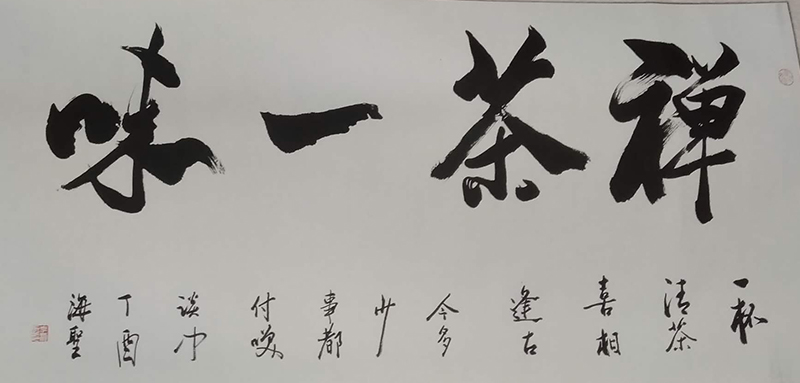 禅茶一味
一杯
清茶
喜相
逢古
今多
少
事都
付笑
谈中
丁酉
海圣